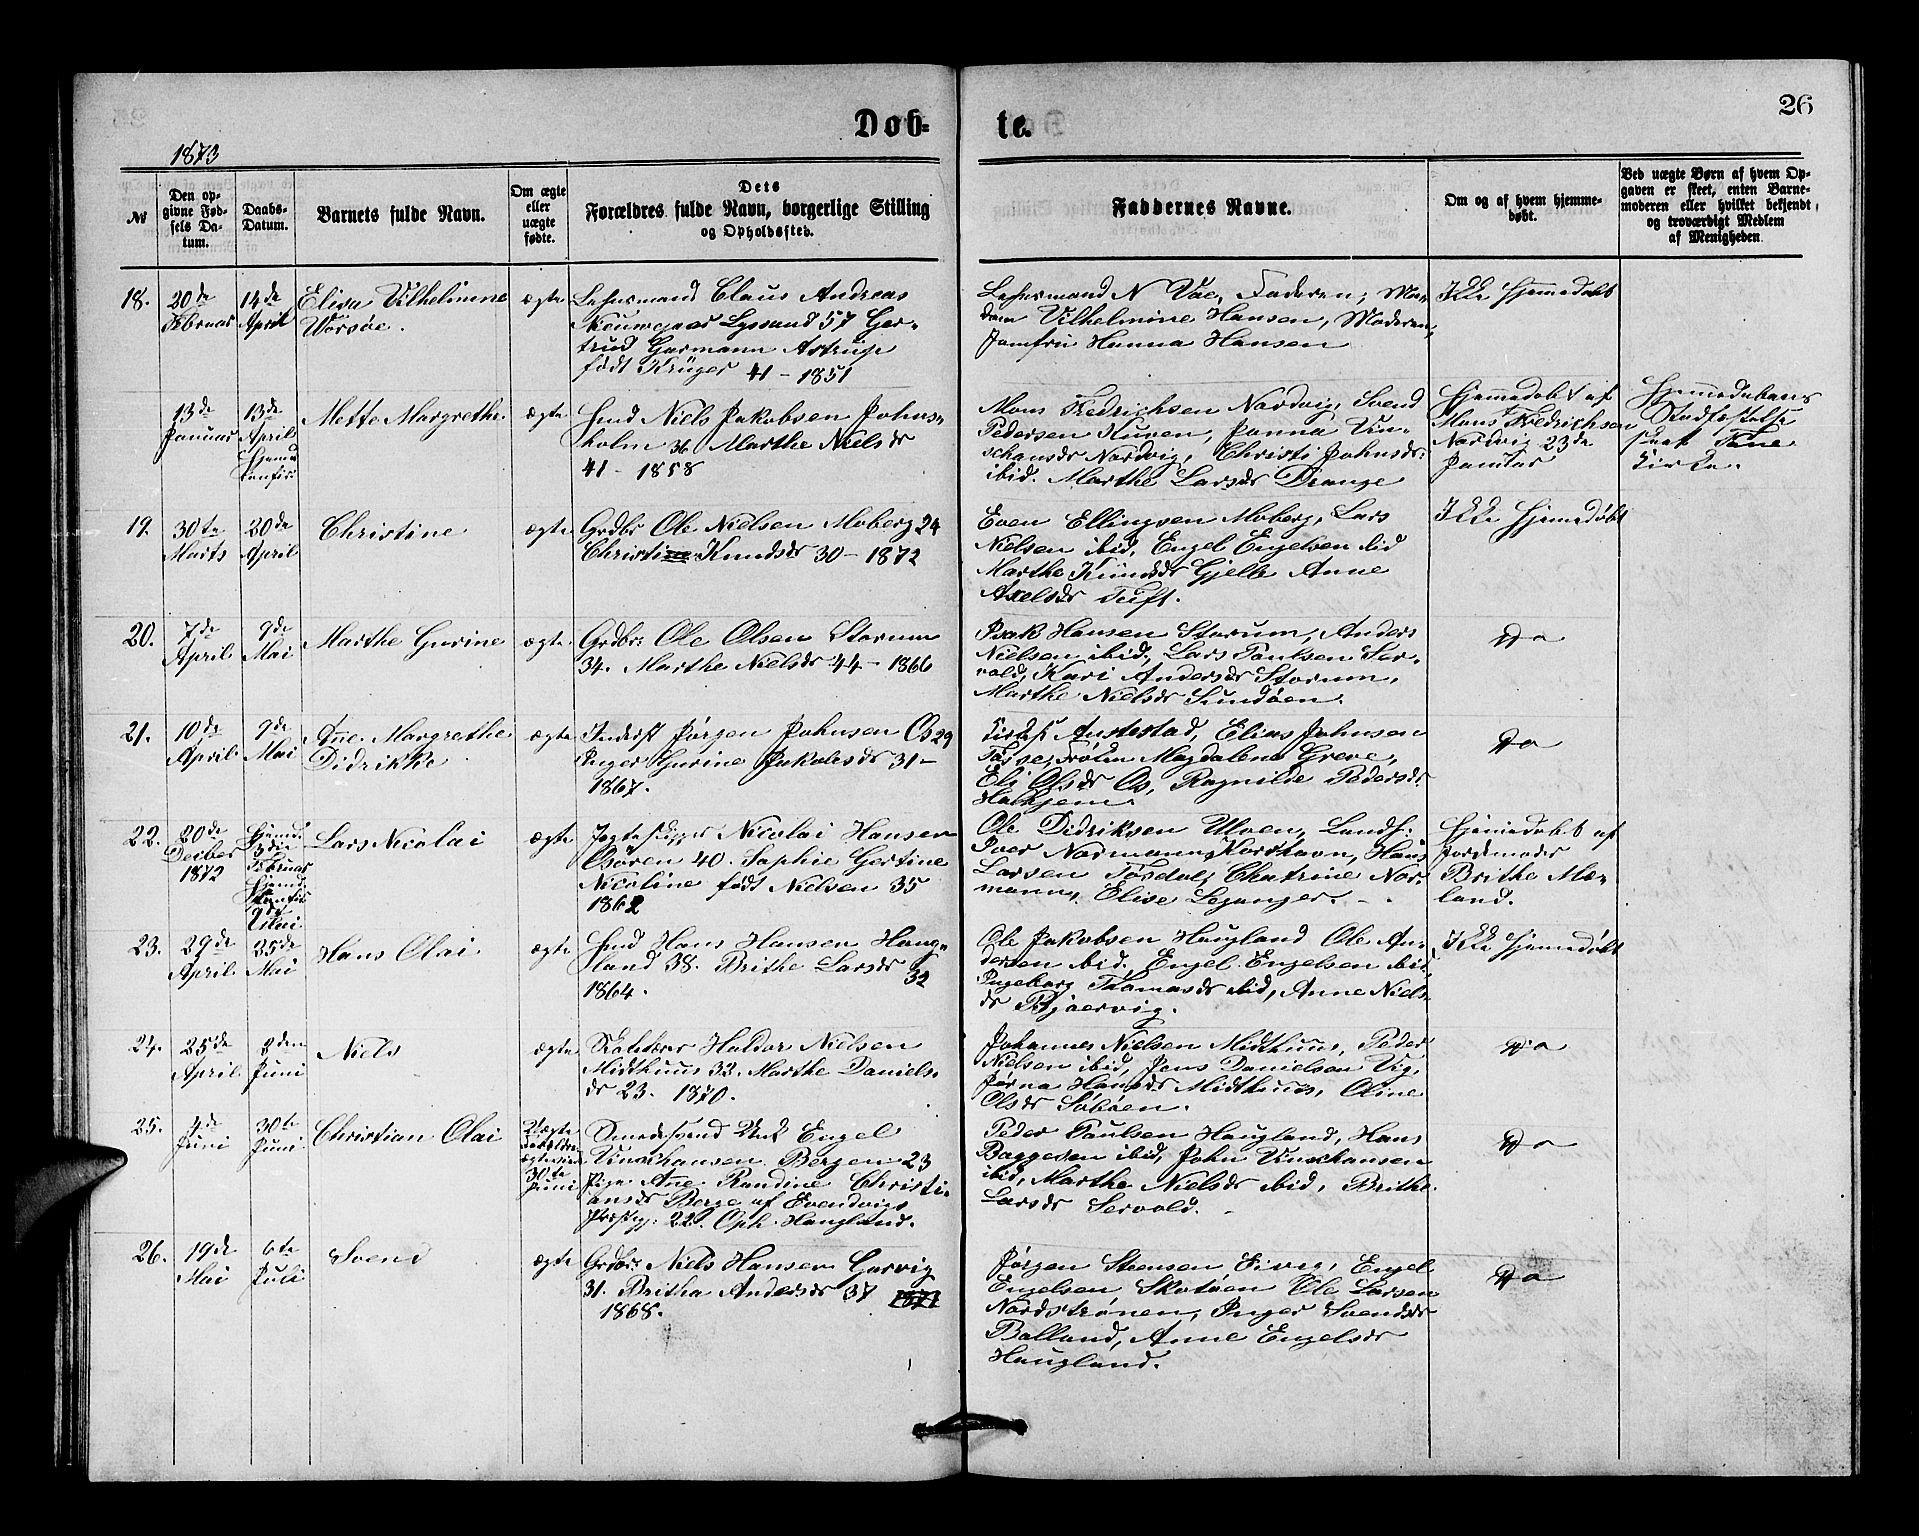 26
Døb-
te.
1873
No
Den op-
givne Fød-
sels Da-
tum.
Daabs-
Datum.
Barnets fulde Navn.
Om ægte
eller
uægte
fødte.
Dets
Forældres fulde Navn, borgerlige Stilling
og Opholdssted.
Faddernes Navne.
Om og af hvem hjemme-
døbt.
Ved uægte Børn af hvem Op-
gaven er skeet, enten Barne-
moderen eller hvilket bekjendt,
og troværdigt Medlem
af Menigheden.
18.
20de
Februar
14de
April
Elisa Vilhelmine
Worsøe.
ægte
Lehnsmand Claus Andreas
Lyssand 57 Ger-
trud Garmann Astrup
født Krüger 41 - 1851
Lehnsmand N Vae, Faderen, Ma-
dam Vilhelmine Hansen, Moderen,
Jomfru Hanna Hansen
Ikke Hjemedøbt
13de
Januar
13de
April
Hjemd
Confir
Mette Margrethe.
ægte
Hmd Niels Jakobsen Johns-
holm 36 Marthe Nielsdr
41 - 1858
Mons Fredrichsen Nordvig, Svend
Pedersen Kuven, Janna Vin-
schansdr Nordvig, Christi Johnsdr
ibid. Marthe Larsdr Drange
Hjemmedøbt af
Mons Fredrichsen
Nordvig 23de
Januar
Hjemmedaabens
Stadfæstelse
skeet Fane
Kirke.
19.
30te
Marts
20de
April
Christine
ægte
Grdbr Ole Nielsen Moberg 24
Christine Knudsdr 30 - 1872
Even Ellingsen Moberg, Lars
Nielsen ibid, Engel Engelsen ibid
Marthe Knudsdr Gjelle Anne
Axelsdr Tuft.
Ikke Hjemedøbt
20.
7de
April.
9de
Mai
Marthe Gurine
ægte
Grdbr: Ole Olsen Storum
34. Marthe Nielsdr 44 - 1866
Isak Hansen Storum, Anders
Nielsen ibid, Lars Paulsen Ser-
vold, Kari Andersdr Storum,
Marthe Nielsdr Sundøen.
Do
21.
10de
April.
9de
Mai
Ane Margrethe
Didrikke
ægte
Inderst Jørgen Johnsen Os 29
Inger Gurine Jakobsdr 31 -
1867.
Austestad, Elias Johnsen
Tøsse, Frøken Magdalena Greve,
Eli Olsdr Os, Ragnilde Pedersdr
Hatjem.
Do
22.
20de
Decber
1872
Hjemd
3die
Februar
Hjemd
Stadf
9de
Mai
Lars Nicolai
ægte
Jagteskipper Nicolai Hansen
Osøren 40. Sophie Gertine
Nicoline født Nielsen 35
1862
Ole Didriksen Ulven, Landh:
Iver Normann Korshavn, Hans
Larsen Tøsdal, Chatrine Nor-
mann, Elise Leganger. -
Hjemedøbt af
Jordemoder
Brithe Mæ-
land.
23.
29de
April.
25de
Mai
Hans Olai
ægte
Hmd Hans Hansen Haug-
land 38. Brithe Larsdr 32
1864.
Ole Jakobsen Haugland Ole An-
dersen ibid. Engel Engelsen ibid,
Ingeborg Thomasdr ibid, Anne Niels-
dr Bjørvig.
Ikke Hjemedøbt
24.
25de
April.
3den
Juni
Niels
ægte
Skolelærer Haldor Nielsen
Midthuus 32. Marthe Daniels-
dr 23. 1870.
Johannes Nielsen Midthuus, Peder
Nielsen ibid, Jens Danielsen Vig,
Jørna Hansdr Midthuus, Oline
Olsdr Søbøen.
Do
25.
4de
Juni
30te
Juni
Christian Olai
Uægte
30te
Juni
Smedesvend Unk Engel
Vinschansen Bergen 23
Pige Ane Randine Christi-
ansdr Berge af Evendvigs
Præstgj: 22. Oph. Haugland.
Peder Paulsen Haugland, Hans
Baggesen ibid, John Vinschansen
ibid, Marthe Nielsdr ibid, Brithe
Larsdr Servold. -
Do
26.
19de
Mai
6te
Juli
Svend
ægte
Grdbr: Niels Hansen Garvig
31. Britha Andersdr 37 1871
1868.
Jørgen Steensen Giveg, Engel
Engelsen Skotøen Ole Larsen
Nordstrønen, Inger Svendsdr
Balland, Anne Engelsdr
Haugland.
Do